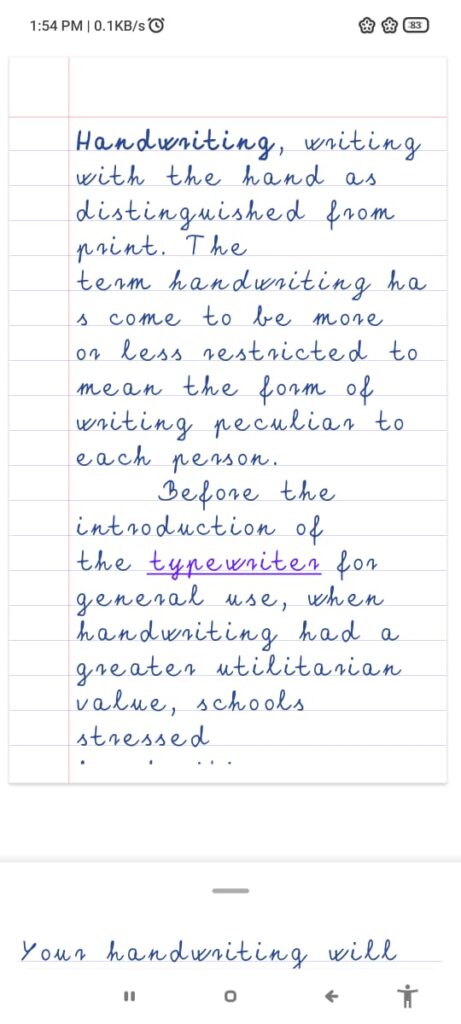 1:54 PM | 0.1KB/s
83
Handwriting, writing
with the hand as
distinguished from
print. The
term handwriting ha
s come to be more
or less restricted to
mean the form of
writing peculiar to
each person.
Before the
introduction of
the typewriter for
general use, when
handwriting had a
greater utilitarian
value, schools
stressed
Your handwriting will